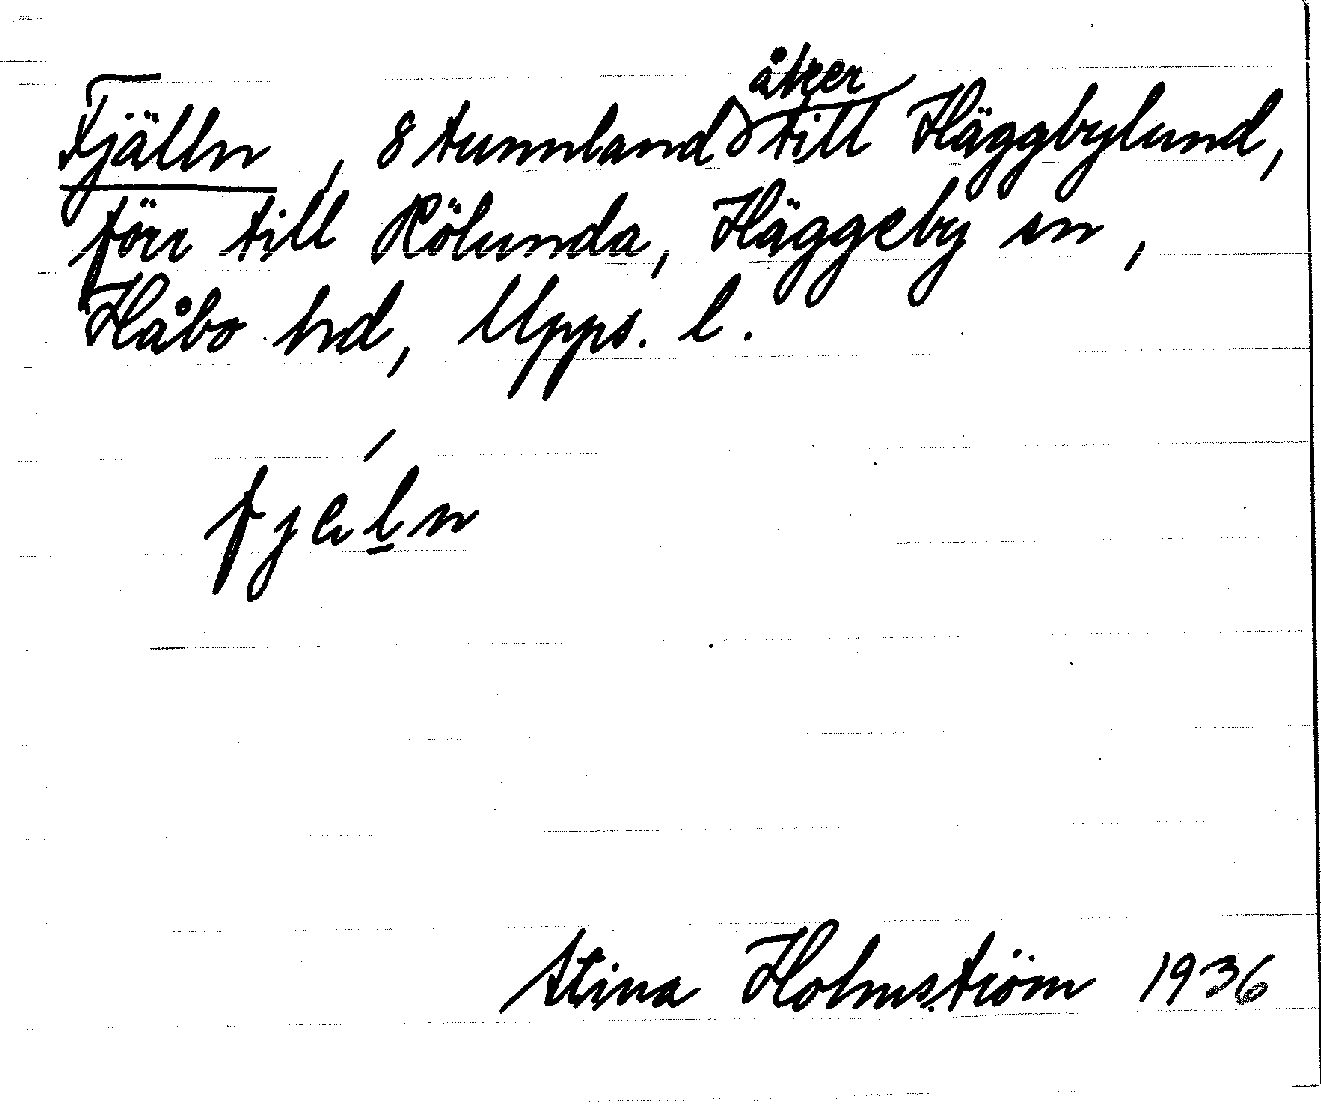 Fjälln, 8 tunnland åker till Häggbylund,
förr till Rölunda, Häggeby sn,
Håbo hd, Upps. l.
fjäln
Stina Holmström 1936